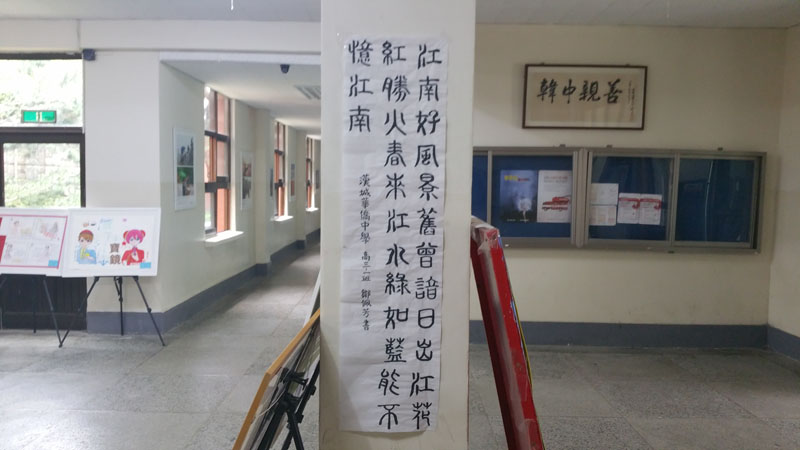 江南好風景舊曾諳日出江花
紅勝火春來江水綠如藍能不
憶江南
漢城華僑中學 高三一班 鄒佩芳書
韓中親善
寶鏡